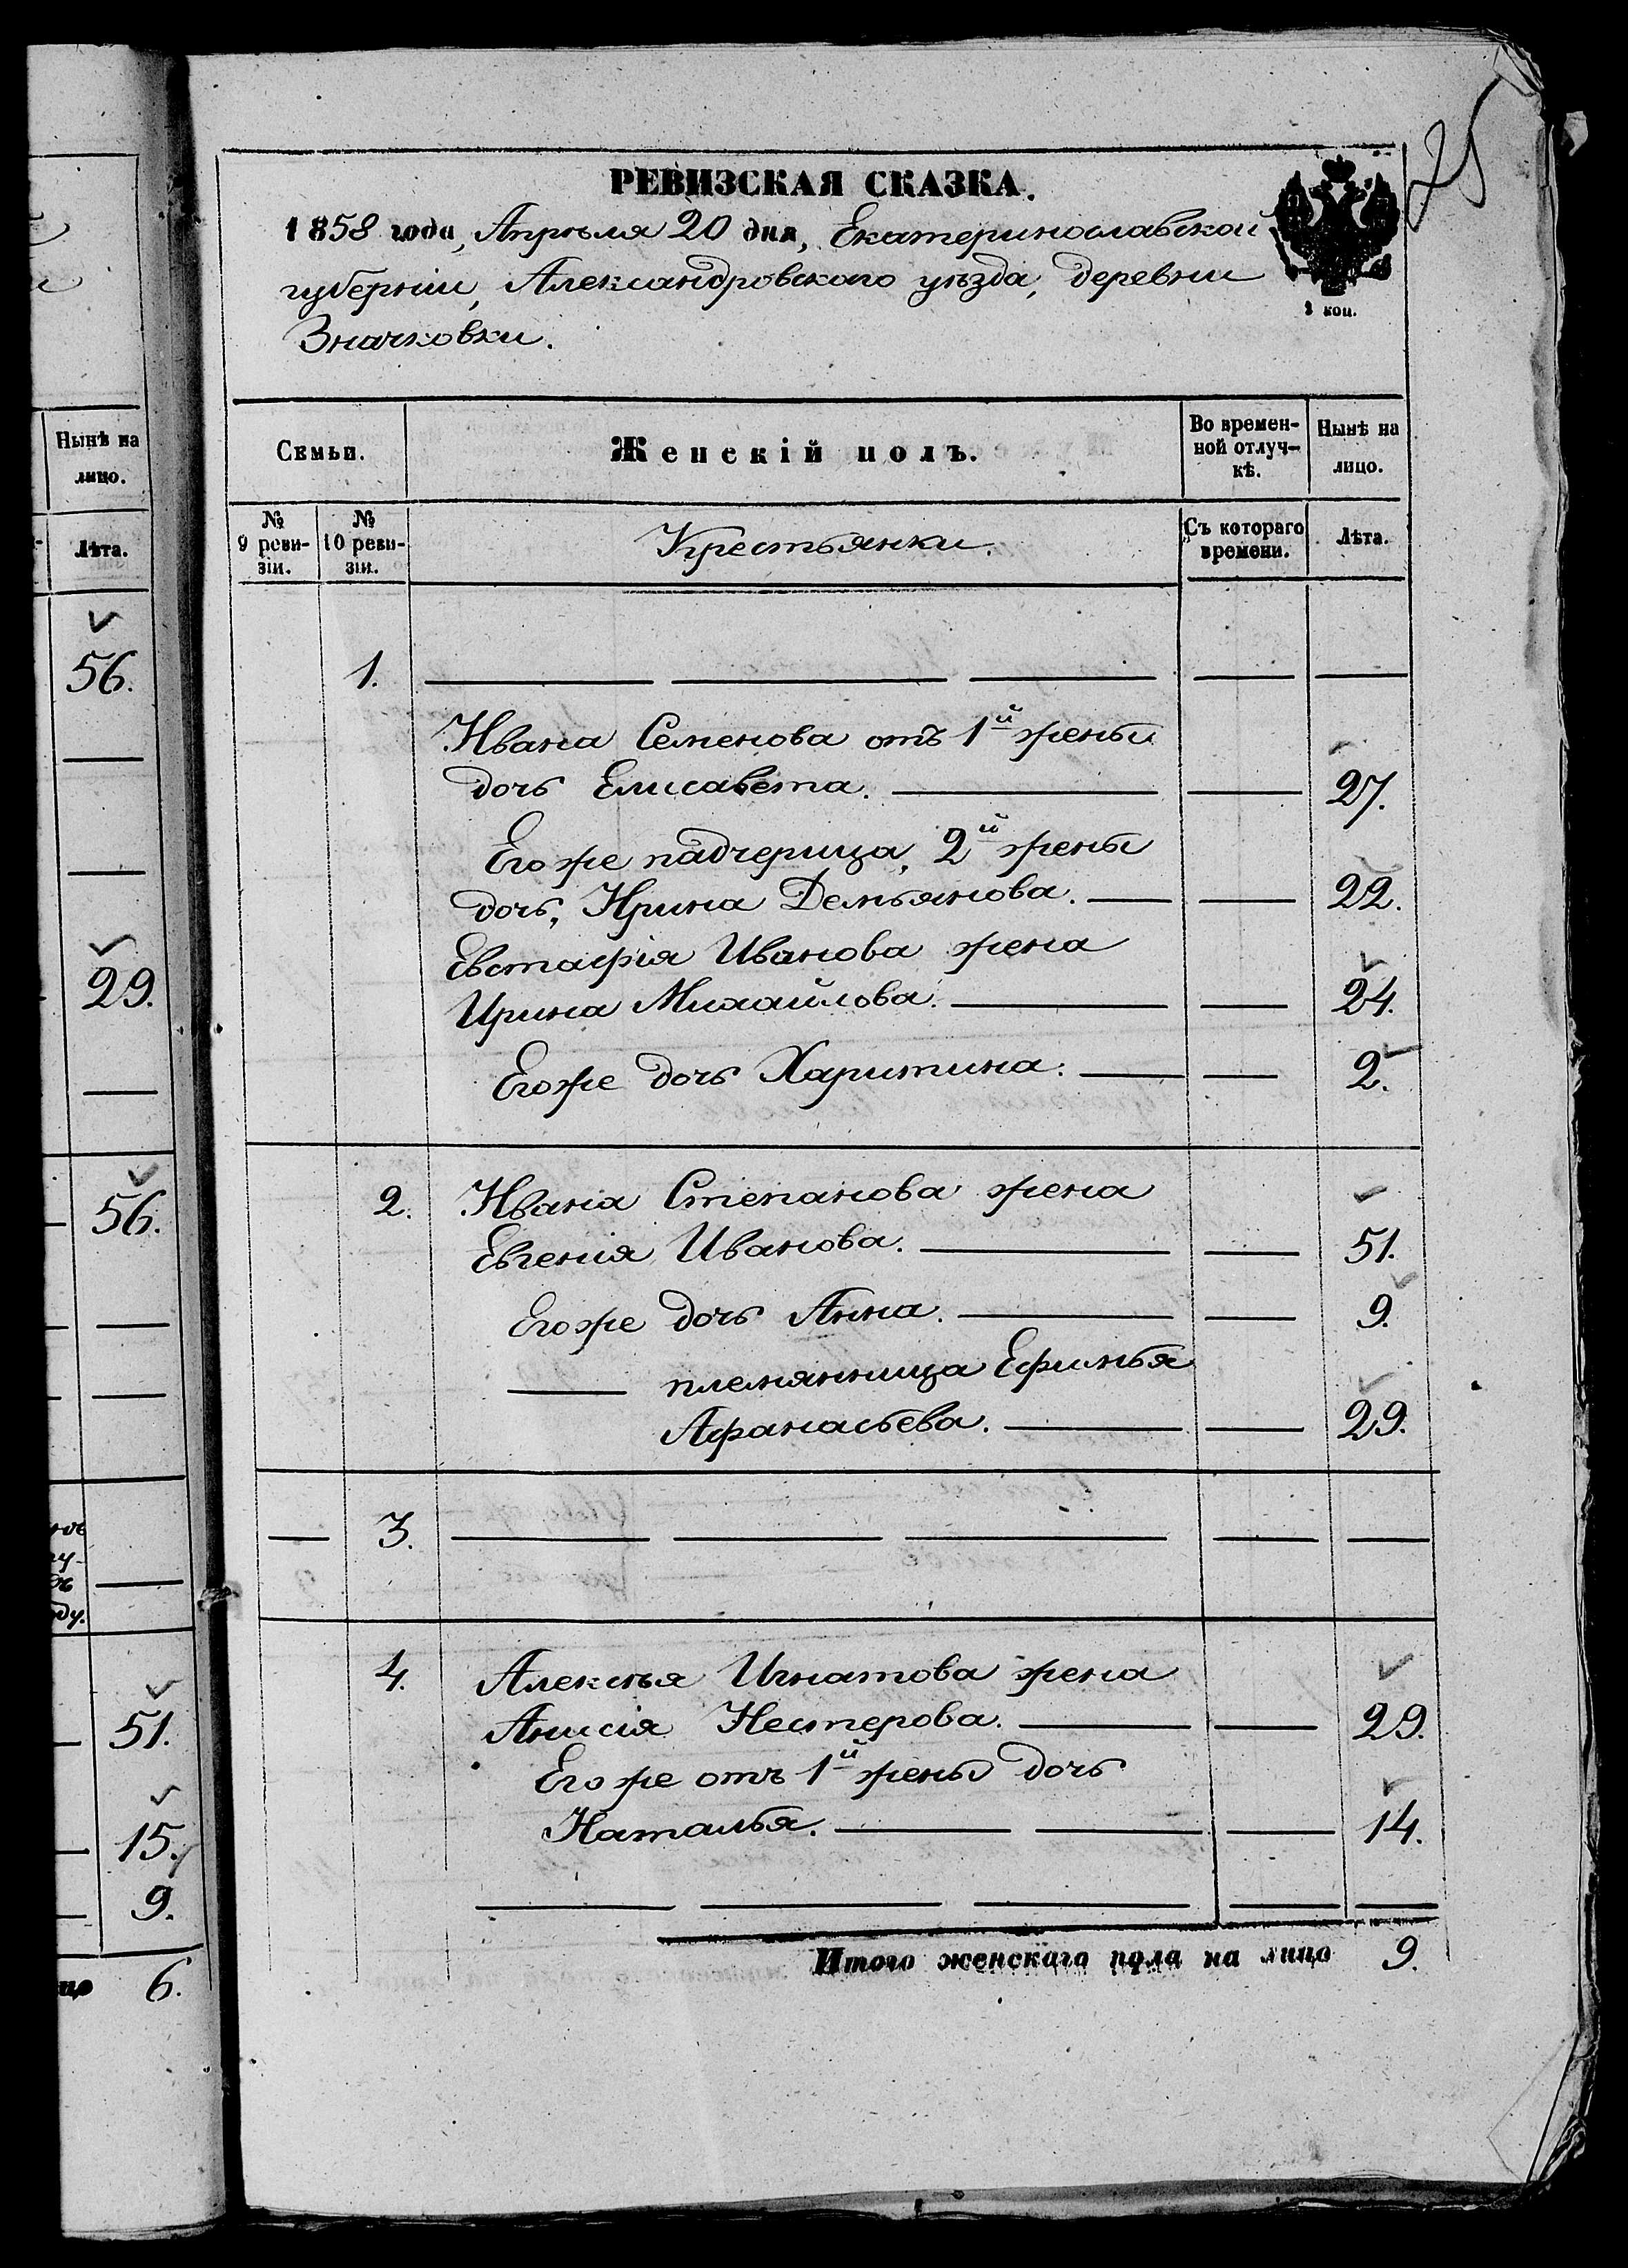 25
РЕВИЗСКАЯ СКАЗКА.
1858 года, Апрѣля 20 дня, Екатеринославской
губерніи, Александровскаго уѣзда, деревни
Значковки.
2 коп.
Семьи.
Женскій полъ.
Во времен-
ной отлуч-
кѣ.
Нынѣ на
лицо.
№
9 реви-
зіи.
№
10 реви-
зіи.
Крестьянки.
Съ котораго
времени.
Лѣта.
1.
Ивана Семенова отъ 1й жены
дочь Елисавета. 27.
Его же падчерица, 2й жены
дочь, Ирина Демьянова. 22.
Евстафія Иванова жена
Ирина Михайлова. 24.
Егоже дочь Харитина. 2.
2. Ивана Степанова жена
Евгенія Иванова. 51.
Егоже дочь Анна. 9.
племянница Ефимья
Афанасьева. 29.
3.
4. Алексѣя Игнатова жена
Анисія Нестерова. 29.
Его же отъ 1й жены дочь
Наталья. 14.
Итого женскаго пола на лицо 9.
Нынѣ на
лицо.
Лѣта.
56.
29.
56.
51.
15.
9.
6.